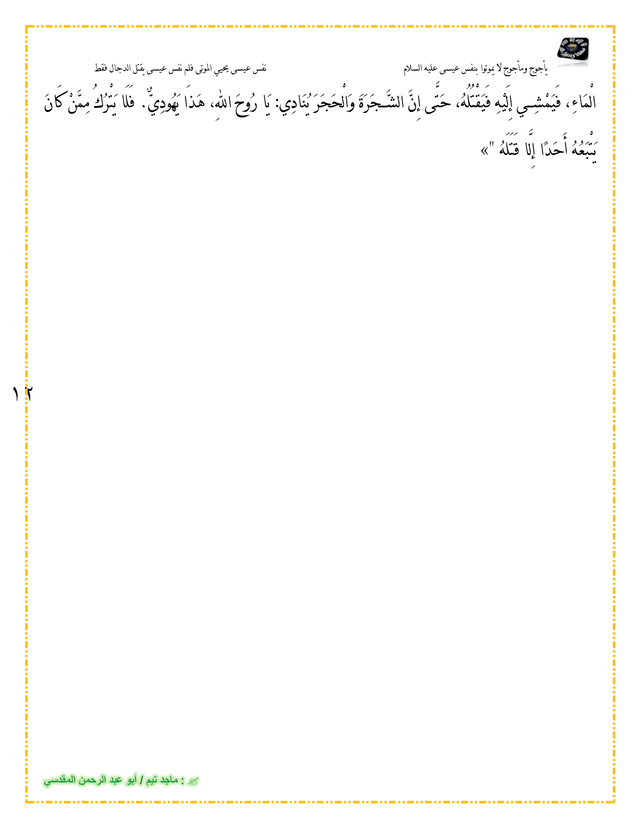 يأجوج ومأجوج لا يموتوا بنفس عيسى عليه السلام
نفس عيسى يحيي الموتى فلم نفس عيسى يقتل الدجال فقط
الْمَاءِ، فَيَمْشِي إِلَيْهِ فَيَقْتُلُهُ، حَتَّى إِنَّ الشَّجَرَةَ وَالْحَجَرَ يُنَادِي: يَا رُوحَ اللهِ، هَذَا يَهُودِيٌّ. فَلَا يَتْرُكُ مِمَّنْ كَانَ
يَتْبَعُهُ أَحَدًا إِلَّا قَتَلَهُ "»
١٢
: ماجد تيم / أبو عبد الرحمن المقدسي